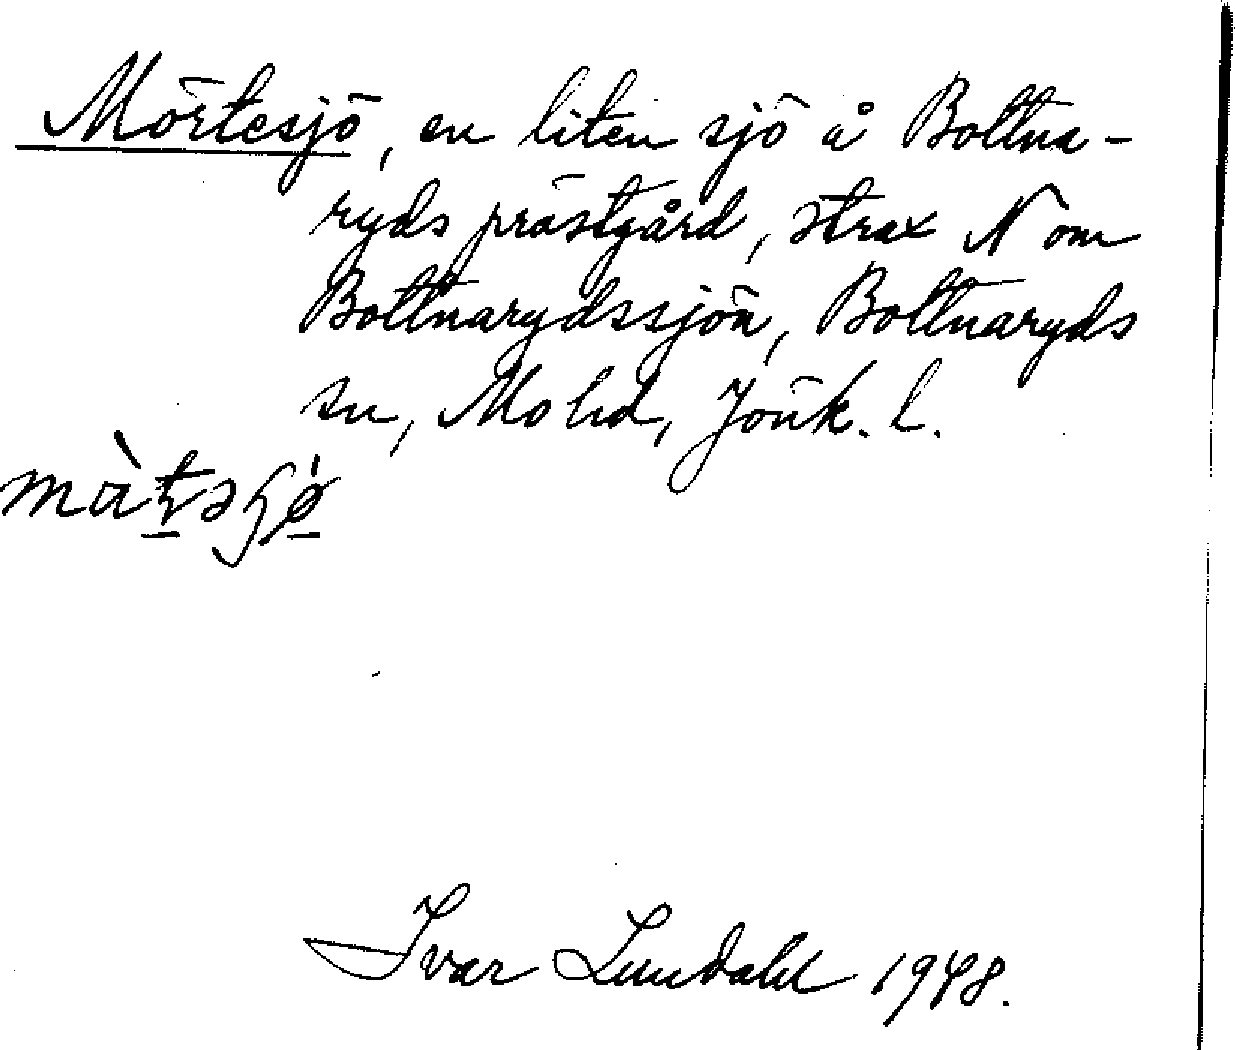 Mörtesjö, en liten sjö å Bottna-
ryds prästgård, strax N om
Bottnarydssjön, Bottnaryds
sn, Mo hd, Jönk. l.
Ivar Lundahl 1948.